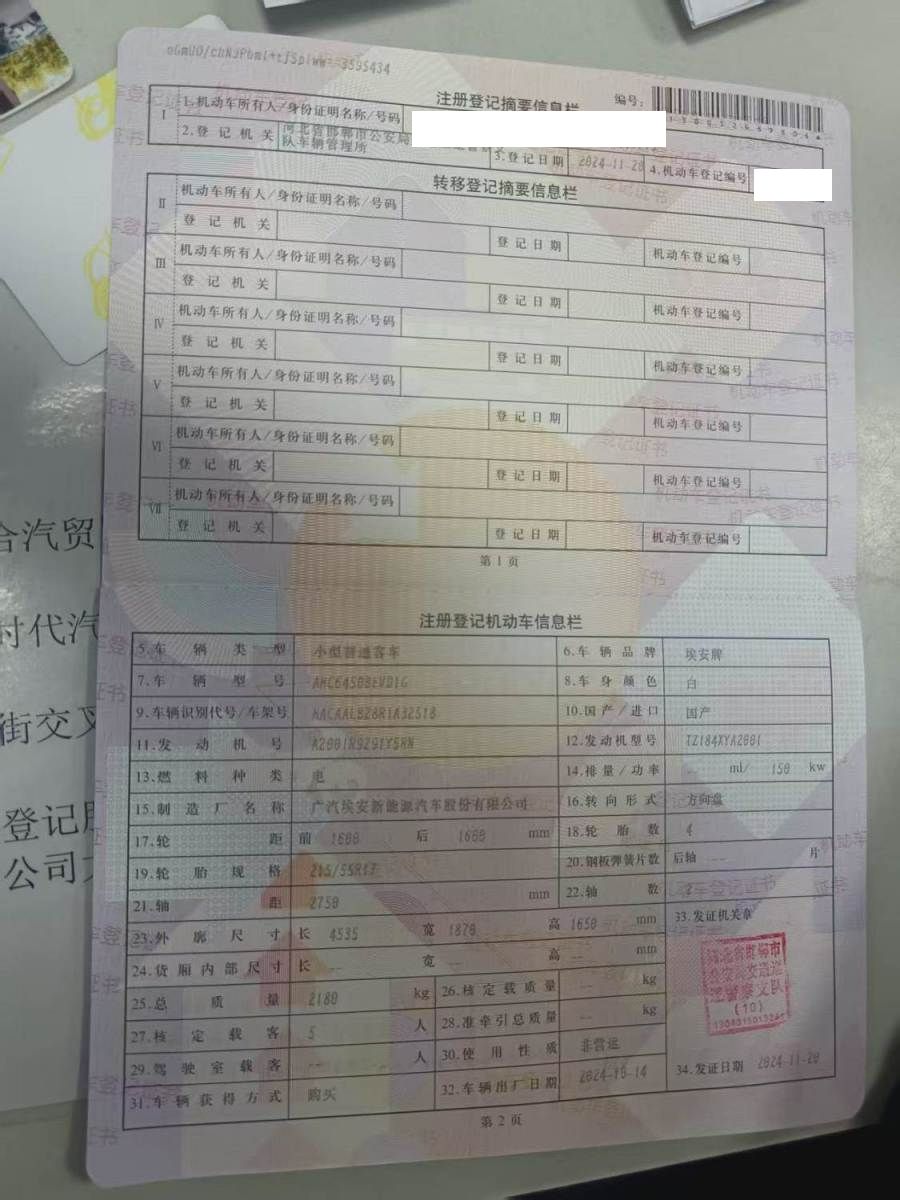 oGmUO/cbN3Pbml+rjSpiww== 3595434
注册登记摘要信息栏
编号：
Ⅰ
1.机动车所有人/身份证明名称/号码
2.登记机关 河北省邯郸市公安局
队车辆管理所
3.登记日期 2024-11-20 4.机动车登记编号
转移登记摘要信息栏
Ⅱ 机动车所有人/身份证明名称/号码
登记机关 登记日期 机动车登记编号
Ⅲ 机动车所有人/身份证明名称/号码
登记机关 登记日期 机动车登记编号
Ⅳ 机动车所有人/身份证明名称/号码
登记机关 登记日期 机动车登记编号
Ⅴ 机动车所有人/身份证明名称/号码
登记机关 登记日期 机动车登记编号
Ⅵ 机动车所有人/身份证明名称/号码
登记机关 登记日期 机动车登记编号
Ⅶ 机动车所有人/身份证明名称/号码
登记机关 登记日期 机动车登记编号
第1页
注册登记机动车信息栏
5.车辆类型 小型普通客车 6.车辆品牌 埃安牌
7.车辆型号 8.车身颜色 白
9.车辆识别代号/车架号 10.国产/进口 国产
11.发动机号 12.发动机型号 TZ184XYA2001
13.燃料种类 电 14.排量/功率 -- ml/ 150 kw
15.制造厂名称 广汽埃安新能源汽车股份有限公司 16.转向形式 方向盘
17.轮距 前 1600 后 1600 mm 18.轮胎数 4
19.轮胎规格 215/55R17 20.钢板弹簧片数 后轴 -- 片
21.轴距 2750 mm 22.轴数 2
23.外廓尺寸 长 4535 宽 1870 高 1650 mm 33.发证机关章
24.货厢内部尺寸 长 -- 宽 -- 高 -- mm
25.总质量 2180 kg 26.核定载质量 -- kg
27.核定载客 5 人 28.准牵引总质量 -- kg
29.驾驶室载客 -- 人 30.使用性质 非营运
31.车辆获得方式 购买 32.车辆出厂日期 2024-10-14 34.发证日期 2024-11-20
河北省邯郸市
公安局交通巡
逻警察支队
(10)
第2页
合汽贸
时代汽
街交叉
登记服
公司